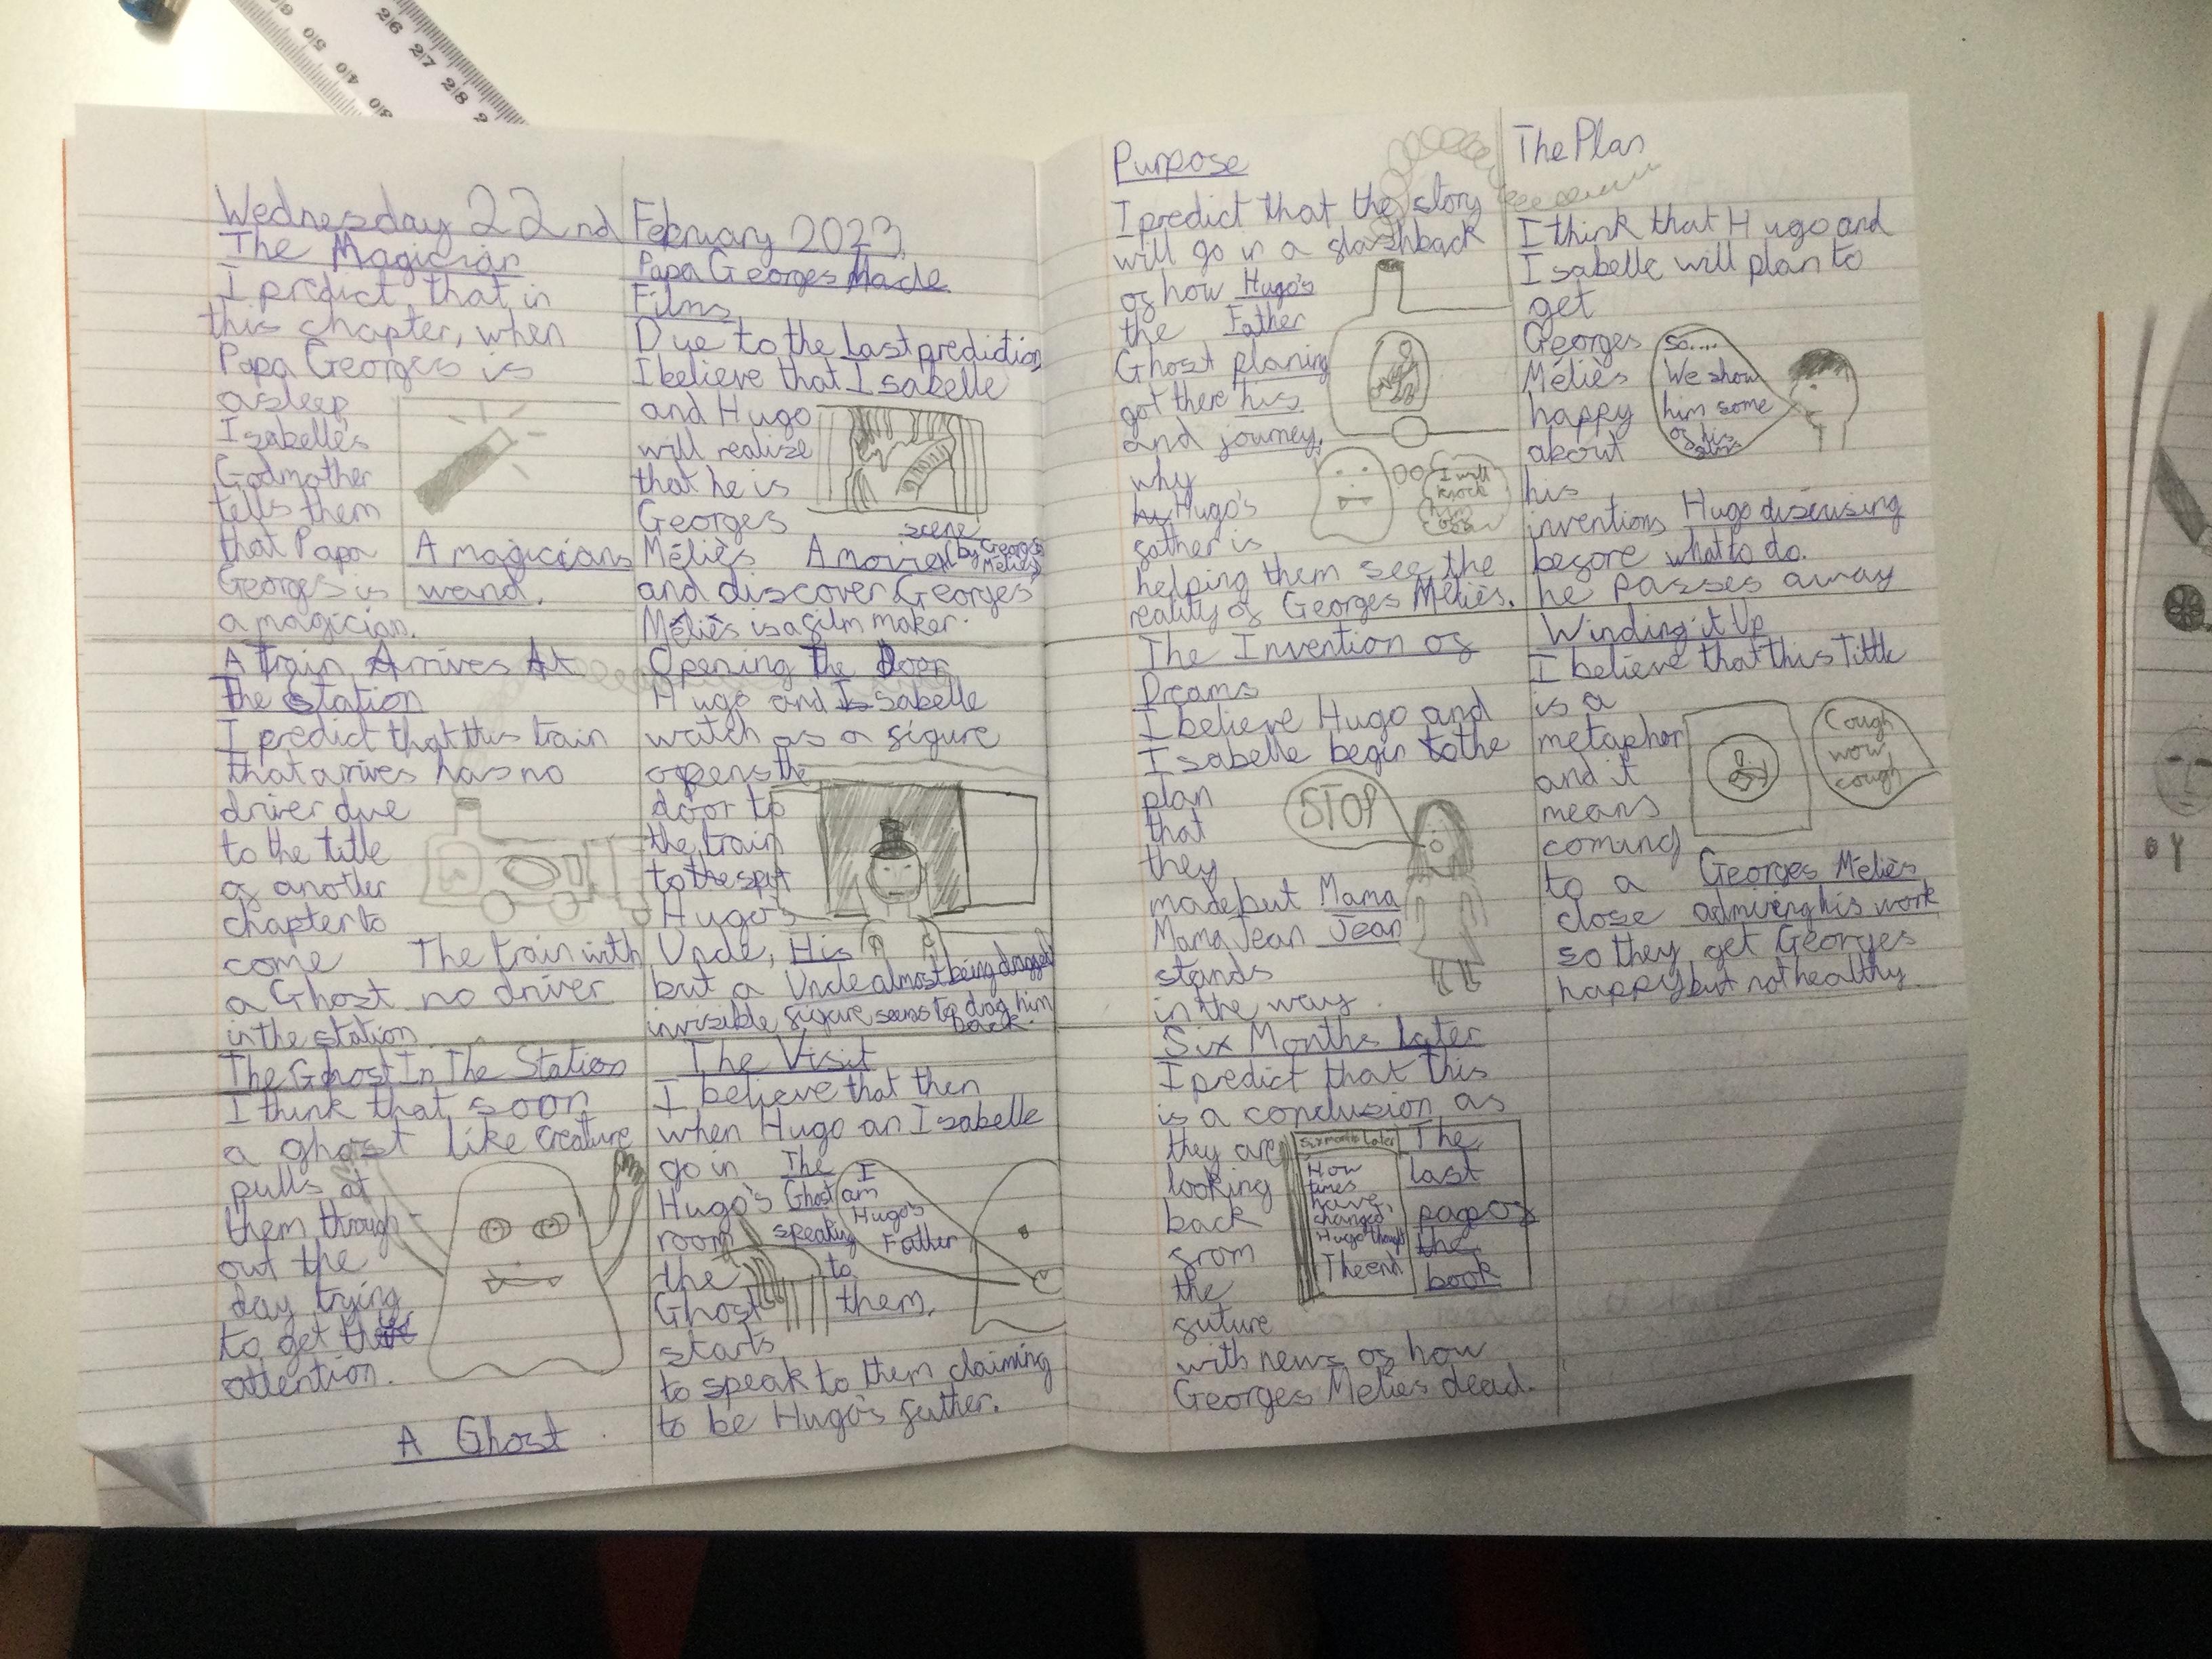 Wednesday 22nd February 2023
The Magician
I predict, that in
this chapter, when
Papa Georges is
asleep
Isabelle's
Godmother
tells them
that Papa
Georges is
a magician.
A magicians
wand.
Papa Georges Made
Films
Due to the last prediction
I believe that Isabelle
and Hugo
will realise
that he is
Georges
Méliès
and discover Georges
Méliès is a film maker.
A movie scene
by Georges
Méliès
A Train Arrives At
The Station
I predict that this train
that arrives has no
driver due
to the title
of another
chapter to
come
a Ghost
in the station.
The train with
no driver
Opening The Door
Hugo and Isabelle
watch as a figure
opens the
door to
the train
to the spot
Hugo's
Uncle,
but a
invisible figure seems to drag him
back.
His
Uncle almost being dragged
The Ghost In The Station
I think that soon
a ghost like creature
pulls at
them through-
out the
day trying
to get
attention.
A Ghost
The Visit
I believe that then
when Hugo an Isabelle
go in
Hugo's
room
the
Ghost
starts
to speak to them claiming
to be Hugo's father.
The
Ghost
speaking
to
them.
I
am
Hugo's
Father
Purpose
I predict that the story
will go in a flashback
of how
the
Ghost
got there
and
why
Hugo's
father is
helping them see the
reality of Georges Méliès.
Hugo's
Father
planing
his
journey.
I will
knock
him
The Plan
I think that Hugo and
Isabelle will plan to
get
Georges
Méliès
happy
about
his
inventions
before
he passes away
So....
We show
him some
of his
films
Hugo discussing
what to do.
The Invention of
Dreams
I believe Hugo and
Isabelle begin to the
plan
that
they
made but
Mama Jean
stands
in the way.
STOP
Mama
Jean
Winding it Up
I believe that this Tittle
is a
metaphor
and it
means
coming
to a
close
so they get Georges
happy but not healthy.
Cough
wow,
cough
Georges Méliès
admiring his work
Six Months Later
I predict that this
is a conclusion as
they are
looking
back
from
the
future
with news of how
Georges Méliès dead.
Six months later
How
times
have
changed
Hugo thought
The end
The
last
page of
the
book
26
27
28